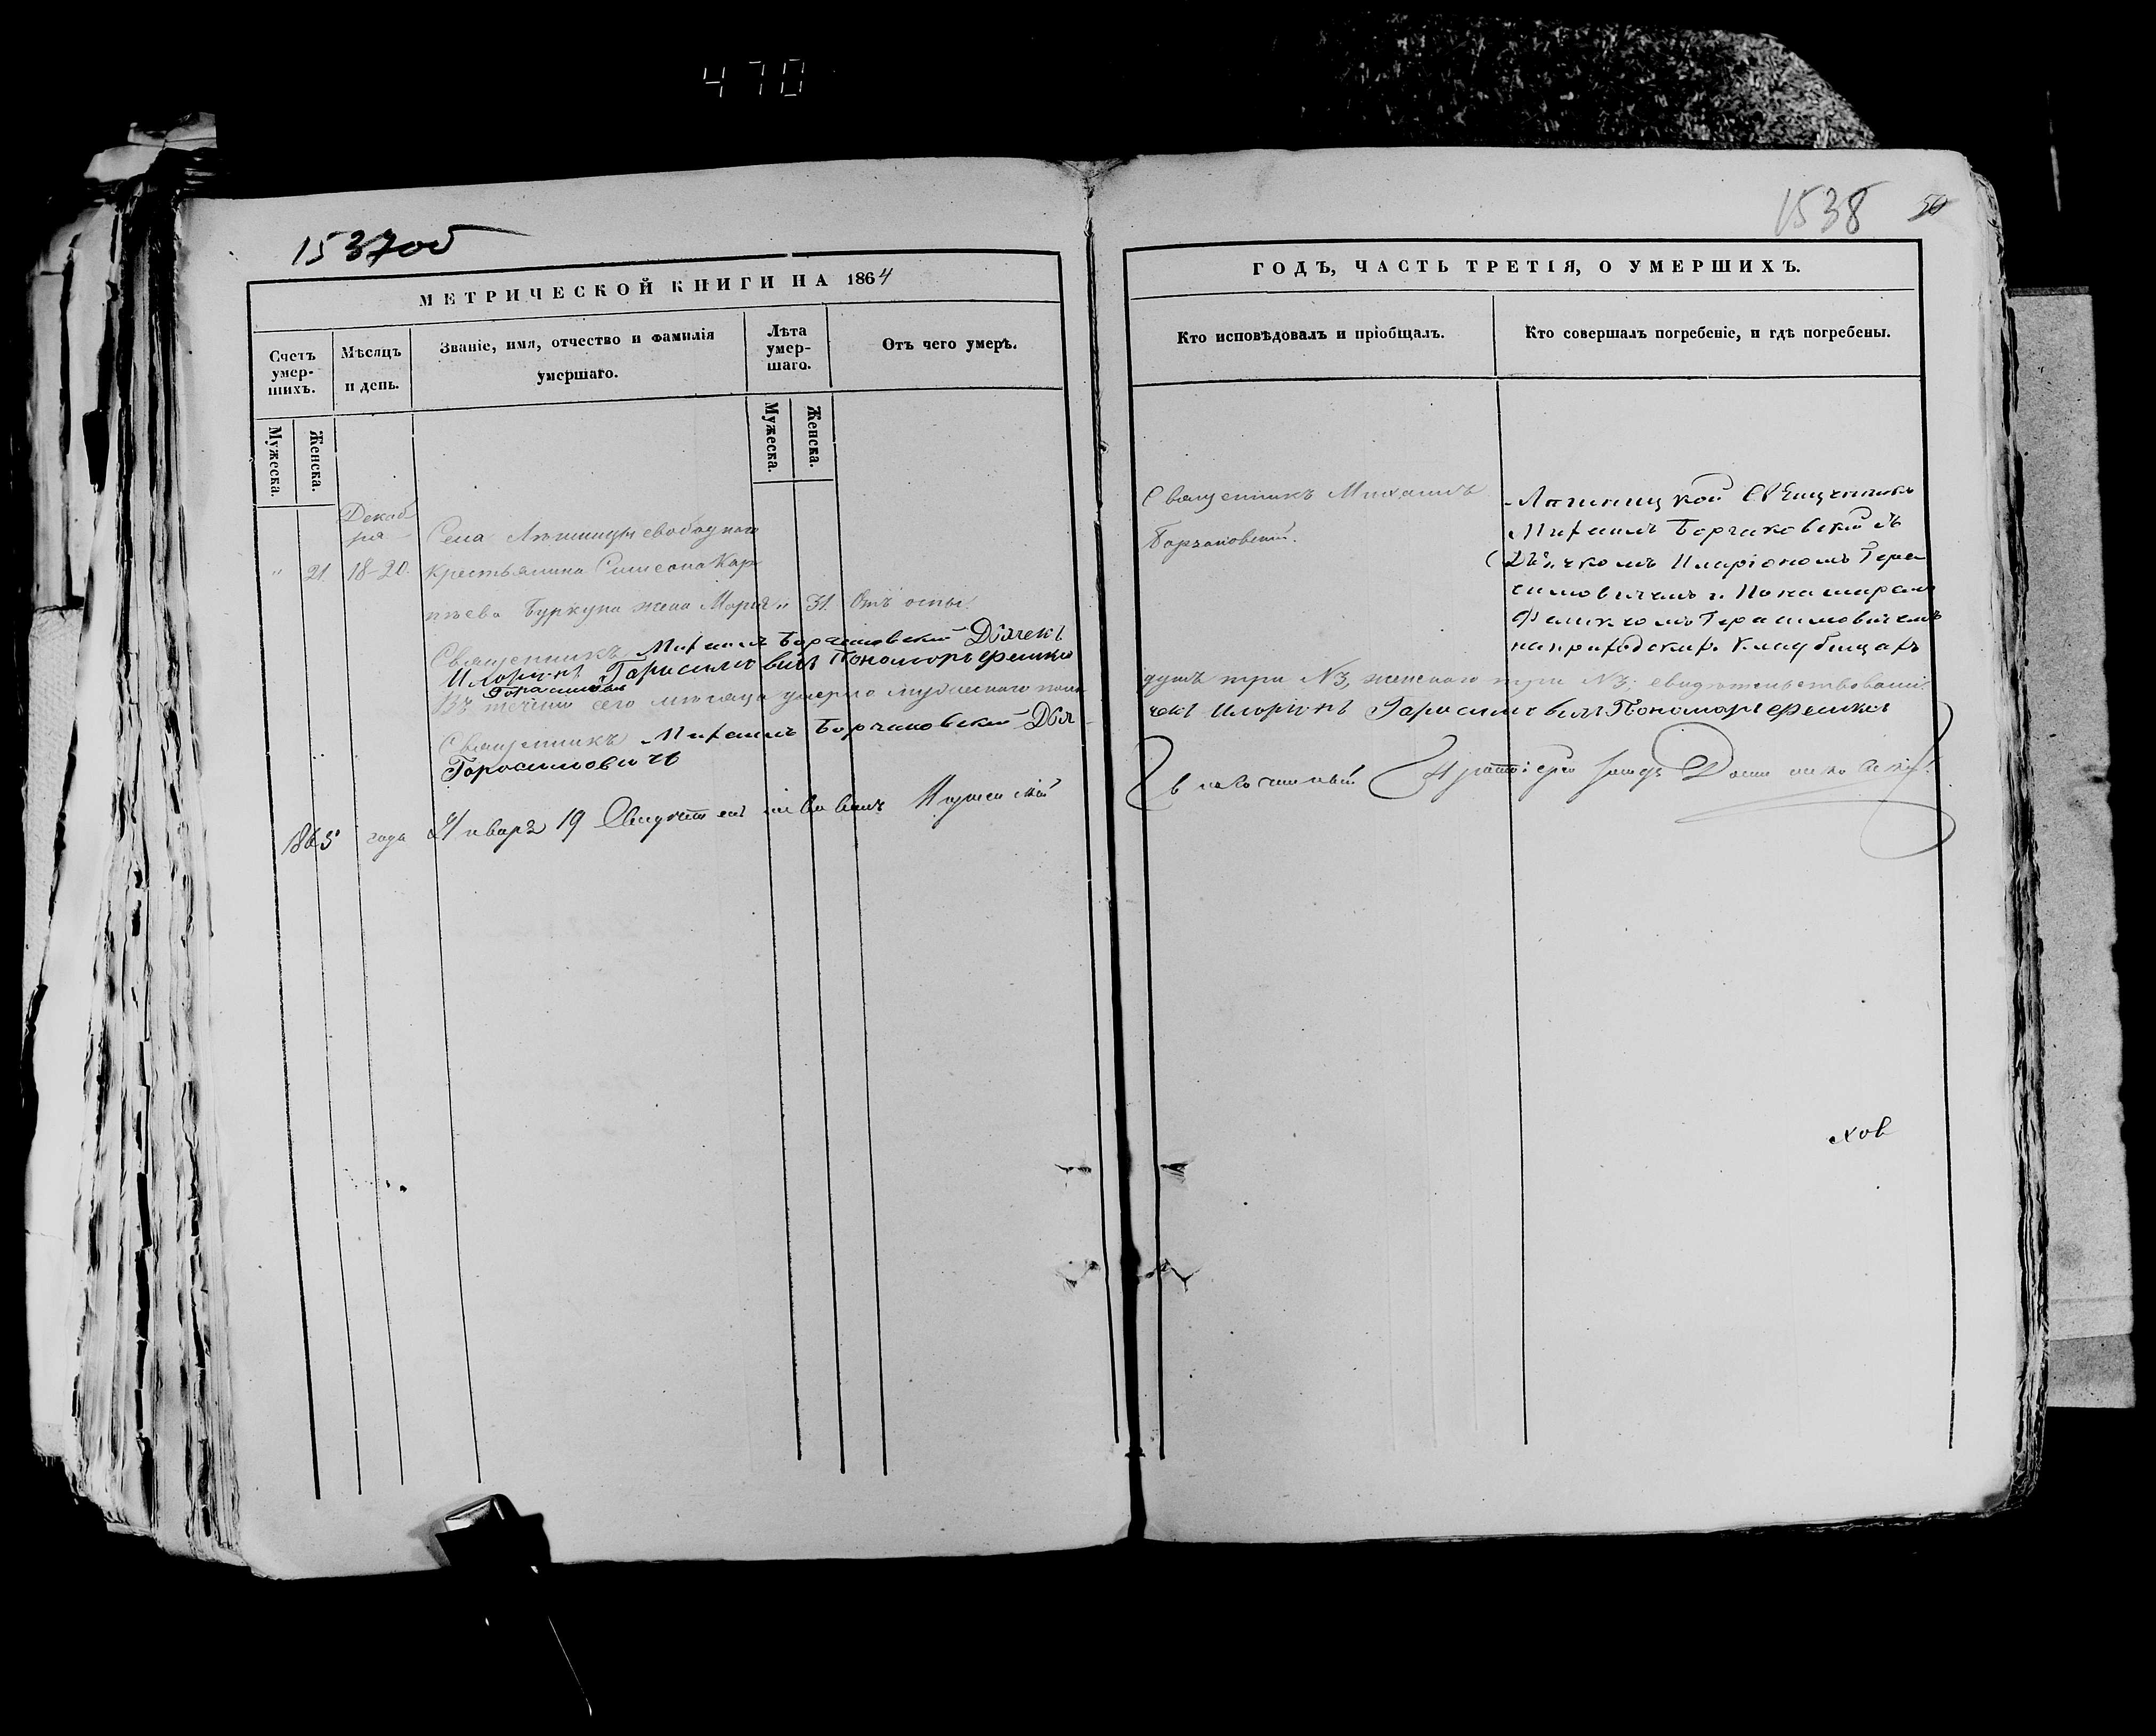 470
1537об
МЕТРИЧЕСКОЙ КНИГИ НА 1864
Счетъ умер-шихъ.
Мѣсяцъ и день.
Званіе, имя, отчество и фамилія умершаго.
Лѣта умер-шаго.
Отъ чего умеръ.
Мужеска.
Женска.
Мужеска.
Женска.
Декаб
ря
Села свободнаго
" 21. 18-20. крестьянина Симеона Кар
пѣева Буркуна жена Марія " 31. Отъ оспы.
Священникъ Михаилъ Борчаковскій Дьячекъ
Иларіонъ Гарасимовичъ Пономарь Феликсъ
Гарасимовичъ
Въ теченіи сего мѣсяца умерло мужескаго пола
Священникъ Михаилъ Борчаковскій Дьячекъ
Гарасимовичъ
1865 года Января 19 Свидѣтельствовалъ
1538 50
ГОДЪ, ЧАСТЬ ТРЕТІЯ, О УМЕРШИХЪ.
Кто исповѣдовалъ и пріобщалъ.
Кто совершалъ погребеніе, и гдѣ погребены.
Священникъ Михаилъ
Борчаковскій.
Священникъ
Михаилъ Борчаковскій съ
Дьячкомъ Иларіономъ Гера
симовичемъ и Пономаремъ
Феликсомъ Герасимовичемъ
на приходскихъ кладбищахъ
душъ три №3, женскаго три №3; свидѣтельствовали
чекъ Иларіонъ Гарасимовичъ Пономарь Феликсъ
Протоіерей
хов